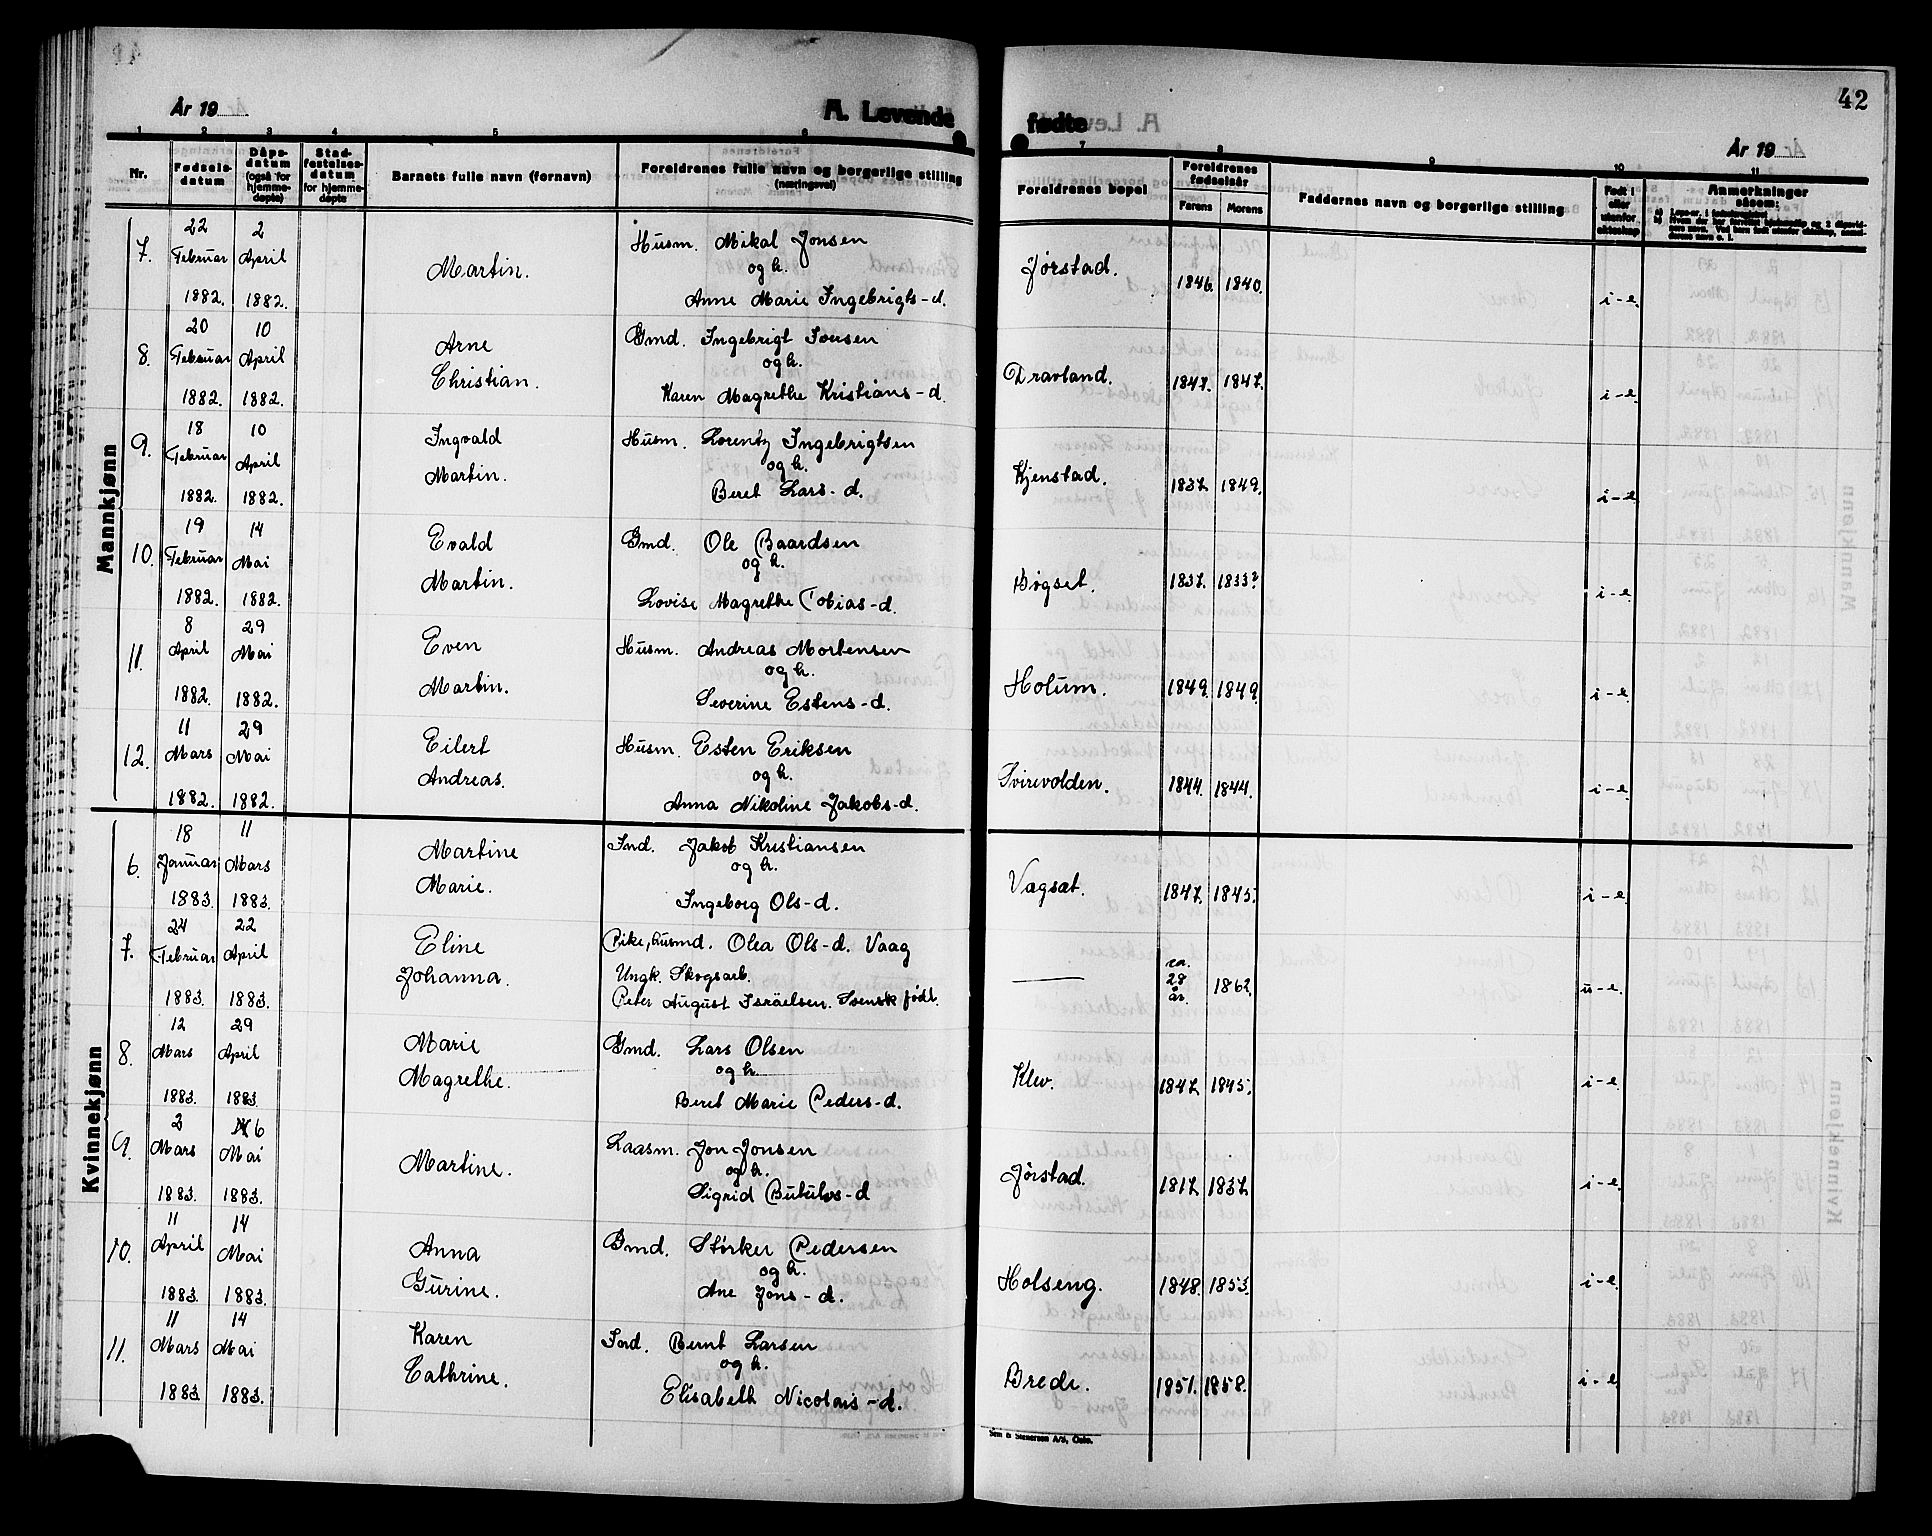 42
År 19
A. Levende
fødte
År 19
1 2 3 4 5 6 7 8 9 10 11
Nr.
Fødsels-
datum
Dåps-
datum
(også for
hjemme-
døpte)
Stad-
festelses-
datum
for hjemme-
døpte
Barnets fulle navn (fornavn)
Foreldrenes fulle navn og borgerlige stilling
(næringsvei)
Foreldrenes bopel
Foreldrenes
fødselsår
Farens Morens
Faddernes navn og borgerlige stilling
Født i
eller
utenfor
ekteskap
Anmerkninger
såsom:
Mannkjønn
7.
22
Februar
1882.
2
April
1882.
Martin.
Husm. Mikal Jonsen
og h.
Anne Marie Ingebrigts-d.
Jørstad.
1846. 1840.
i-e.
8.
20
Februar
1882.
10
April
1882.
Arne
Christian.
Gmd. Ingebrigt Iversen
og h.
Karen Magrethe Kristians-d.
Travland.
1847. 1847.
i-e.
9.
18
Februar
1882.
10
April
1882.
Ingvald
Martin.
Husm. Lorentz Ingebrigtsen
og h.
Beret Lars-d.
Kjenstad.
1837. 1849.
i-e.
10.
19
Februar
1882.
14
Mai
1882.
Evald
Martin.
Gmd. Ole Baardsen
og h.
Lovise Magrethe Tobias-d.
Bøgset.
1837. 1833?
i-e.
11.
8
April
1882.
29
Mai
1882.
Even
Martin.
Husm. Andreas Mortensen
og h.
Severine Estens-d.
Holum.
1849. 1849.
i-e.
12.
11
Mars
1882.
29
Mai
1882.
Eilert
Andreas.
Husm. Esten Eriksen
og h.
Anna Nikoline Jakobs-d.
Svirevolden.
1844. 1844.
i-e.
Kvinnekjønn
6.
18
Januar
1883.
11
Mars
1883.
Martine
Marie.
Ind. Jakob Kristiansen
og h.
Ingeborg Ols-d.
Vagsæt.
1847. 1845.
i-e.
7.
24
Februar
1883.
22
April
1883.
Eline
Johanna.
Pike, husmd. Olea Ols-d. Vaag
Ungk. Skogsarb.
Peter August Israelsen. Svensk født.
—
ca.
28
år.
1862.
u-e.
8.
12
Mars
1883.
29
April
1883.
Marie
Magrethe.
Gmd. Lars Olsen
og h.
Beret Marie Peders-d.
Klev.
1847. 1845.
i-e.
9.
2
Mars
1883.
6
Mai
1883.
Martine.
Laasm. Jon Jonsen
og h.
Sigrid Butulvs-d
Jørstad.
1817. 1837.
i-e.
10.
11
April
1883.
14
Mai
1883.
Anna
Gurine.
Gmd. Størker Pedersen
og h.
Ane Jons-d.
Holseng.
1848. 1853.
i-e.
11.
11
Mars
1883.
14
Mai
1883.
Karen
Cathrine.
Ind. Bernt Larsen
og h.
Elisabeth Nicolais-d.
Brede.
1851. 1858.
i-e.
Sem & Stenersen A/S, Oslo.